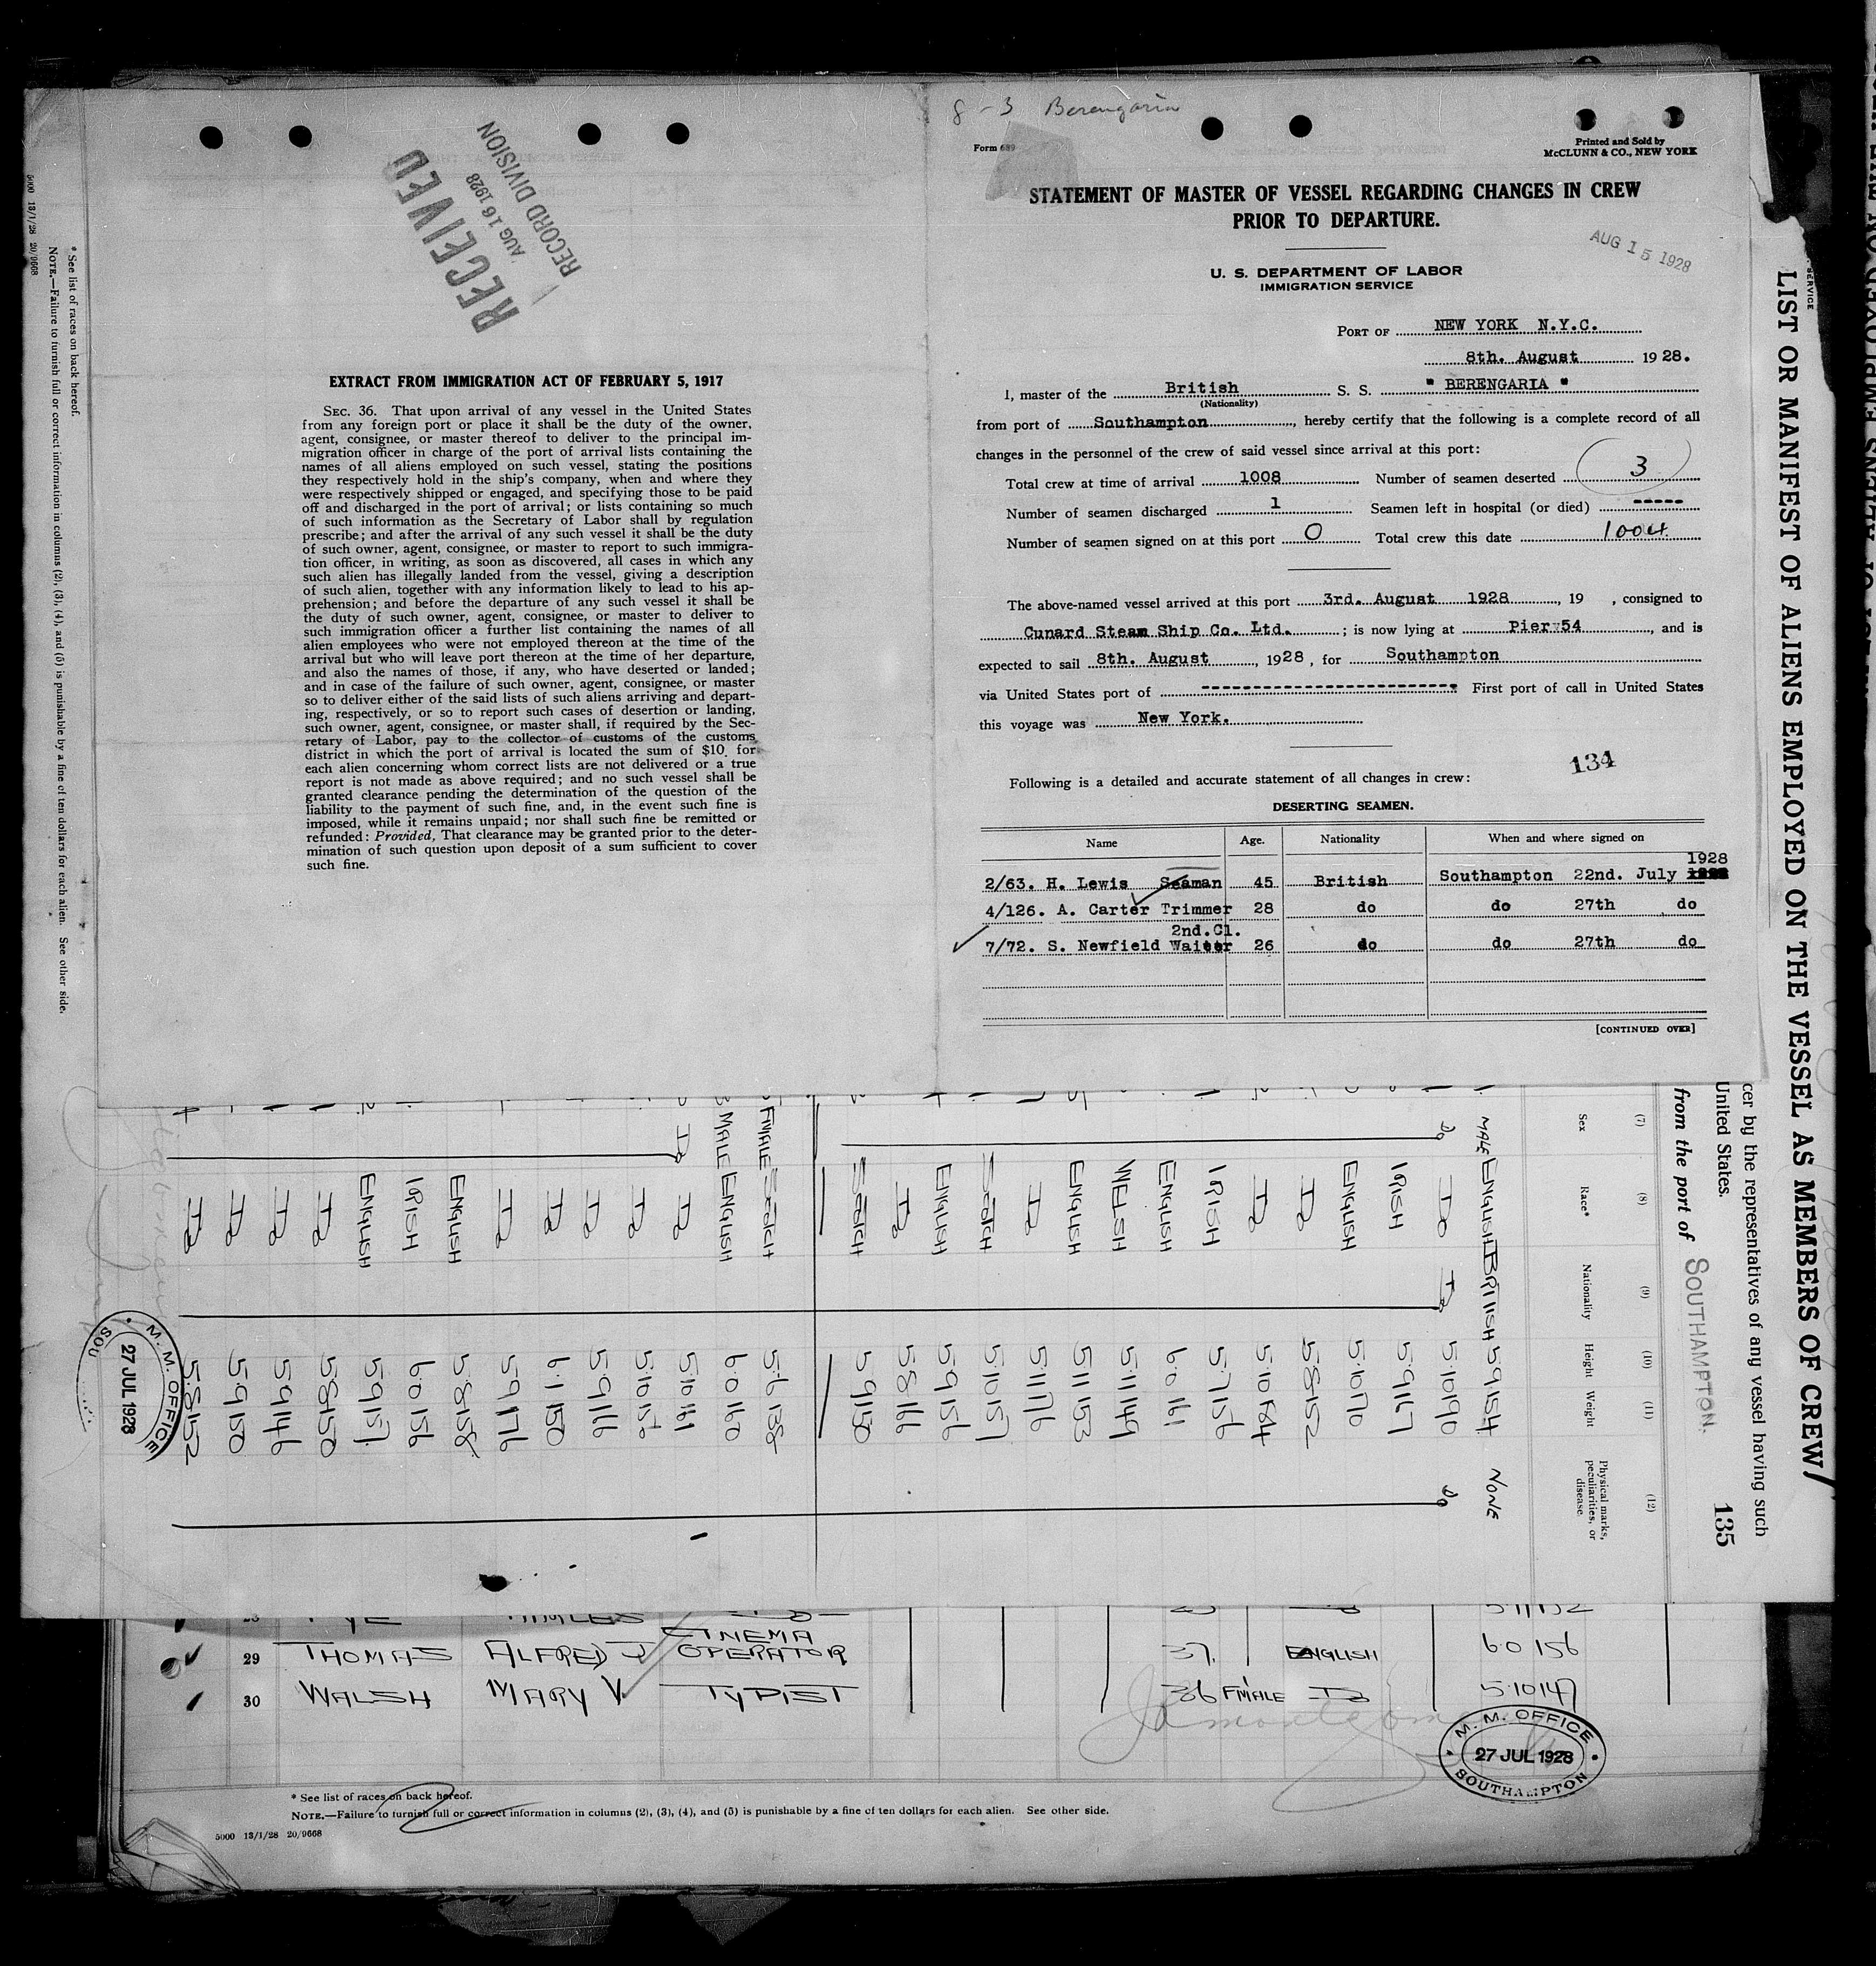 RECEIVED
AUG 16 1928
RECORD DIVISION
EXTRACT FROM IMMIGRATION ACT OF FEBRUARY 5, 1917
SEC. 36. That upon arrival of any vessel in the United States
from any foreign port or place it shall be the duty of the owner,
agent, consignee, or master thereof to deliver to the principal im-
migration officer in charge of the port of arrival lists containing the
names of all aliens employed on such vessel, stating the positions
they respectively hold in the ship's company, when and where they
were respectively shipped or engaged, and specifying those to be paid
off and discharged in the port of arrival; or lists containing so much
of such information as the Secretary of Labor shall by regulation
prescribe; and after the arrival of any such vessel it shall be the duty
of such owner, agent, consignee, or master to report to such immigra-
tion officer, in writing, as soon as discovered, all cases in which any
such alien has illegally landed from the vessel, giving a description
of such alien, together with any information likely to lead to his ap-
prehension; and before the departure of any such vessel it shall be
the duty of such owner, agent, consignee, or master to deliver to
such immigration officer a further list containing the names of all
alien employees who were not employed thereon at the time of the
arrival but who will leave port thereon at the time of her departure,
and also the names of those, if any, who have deserted or landed;
and in case of the failure of such owner, agent, consignee, or master
so to deliver either of the said lists of such aliens arriving and depart-
ing, respectively, or so to report such cases of desertion or landing,
such owner, agent, consignee, or master shall, if required by the Sec-
retary of Labor, pay to the collector of customs of the customs
district in which the port of arrival is located the sum of $10 for
each alien concerning whom correct lists are not delivered or a true
report is not made as above required; and no such vessel shall be
granted clearance pending the determination of the question of the
liability to the payment of such fine, and, in the event such fine is
imposed, while it remains unpaid; nor shall such fine be remitted or
refunded: Provided, That clearance may be granted prior to the deter-
mination of such question upon deposit of a sum sufficient to cover
such fine.
8-3 Berengaria
Form 689
Printed and Sold by
McCLUNN & CO., NEW YORK
STATEMENT OF MASTER OF VESSEL REGARDING CHANGES IN CREW
PRIOR TO DEPARTURE.
AUG 15 1928
U. S. DEPARTMENT OF LABOR
IMMIGRATION SERVICE
PORT OF NEW YORK N.Y.C.
8th. August 1928.
I, master of the British S. S. " BERENGARIA "
(Nationality)
from port of Southampton, hereby certify that the following is a complete record of all
changes in the personnel of the crew of said vessel since arrival at this port:
Total crew at time of arrival 1008 Number of seamen deserted 3
Number of seamen discharged 1 Seamen left in hospital (or died) -----
Number of seamen signed on at this port 0 Total crew this date 1004
The above-named vessel arrived at this port 3rd. August 1928, 19 , consigned to
Cunard Steam Ship Co. Ltd. ; is now lying at Pier 54, and is
expected to sail 8th. August, 1928, for Southampton
via United States port of ---------------------------- First port of call in United States
this voyage was New York.
134
Following is a detailed and accurate statement of all changes in crew:
DESERTING SEAMEN.
Name Age. Nationality When and where signed on
1928
2/63. H. Lewis Seaman 45 British Southampton 22nd. July
4/126. A. Carter Trimmer 28 do do 27th do
2nd.Cl.
7/72. S. Newfield Waiter 26 do do 27th do
[CONTINUED OVER]
LIST OR MANIFEST OF ALIENS EMPLOYED ON THE VESSEL AS MEMBERS OF CREW
SERVICE
cer by the representatives of any vessel having such
United States.
135
from the port of SOUTHAMPTON.
(7) (8) (9) (10) (11) (12)
Sex Race* Nationality Height Weight Physical marks,
peculiarities, or
disease
MALE ENGLISH BRITISH 5·9 154 NONE
Do Do Do 5·10 190 Do
IRISH 5·9 167
ENGLISH 5·10 170
Do 5·8 152
Do 5·10 184
IRISH 5·7 156
ENGLISH 6·0 161
WELSH 5·11 149
ENGLISH 5·11 153
Do 5·11 176
SCOTCH 5·10 157
ENGLISH 5·9 156
Do 5·8 166
SCOTCH 5·9 150
FMALE SCOTCH 5·6 138
MALE ENGLISH 6·0 160
Do Do 5·10 161
Do 5·10 156
Do 5·9 166
Do 6·1 150
Do 5·9 176
ENGLISH 5·8 158
IRISH 6·0 156
ENGLISH 5·9 157
Do 5·8 150
Do 5·9 146
Do 5·9 150
Do 5·8 152
M. M. OFFICE
27 JUL 1928
SOU
* See list of races on back hereof.
NOTE.—Failure to furnish full or correct information in columns (2), (3), (4), and (5) is punishable by a fine of ten dollars for each alien. See other side.
5000 13/1/28 20/9668
29 THOMAS ALFRED J CINEMA OPERATOR 37 ENGLISH 6·0 156
30 WALSH MARY V. TYPIST 36 FMALE Do 5·10 147
M. M. OFFICE
27 JUL 1928
SOUTHAMPTON
* See list of races on back hereof.
NOTE.—Failure to furnish full or correct information in columns (2), (3), (4), and (5) is punishable by a fine of ten dollars for each alien. See other side.
5000 13/1/28 20/9668